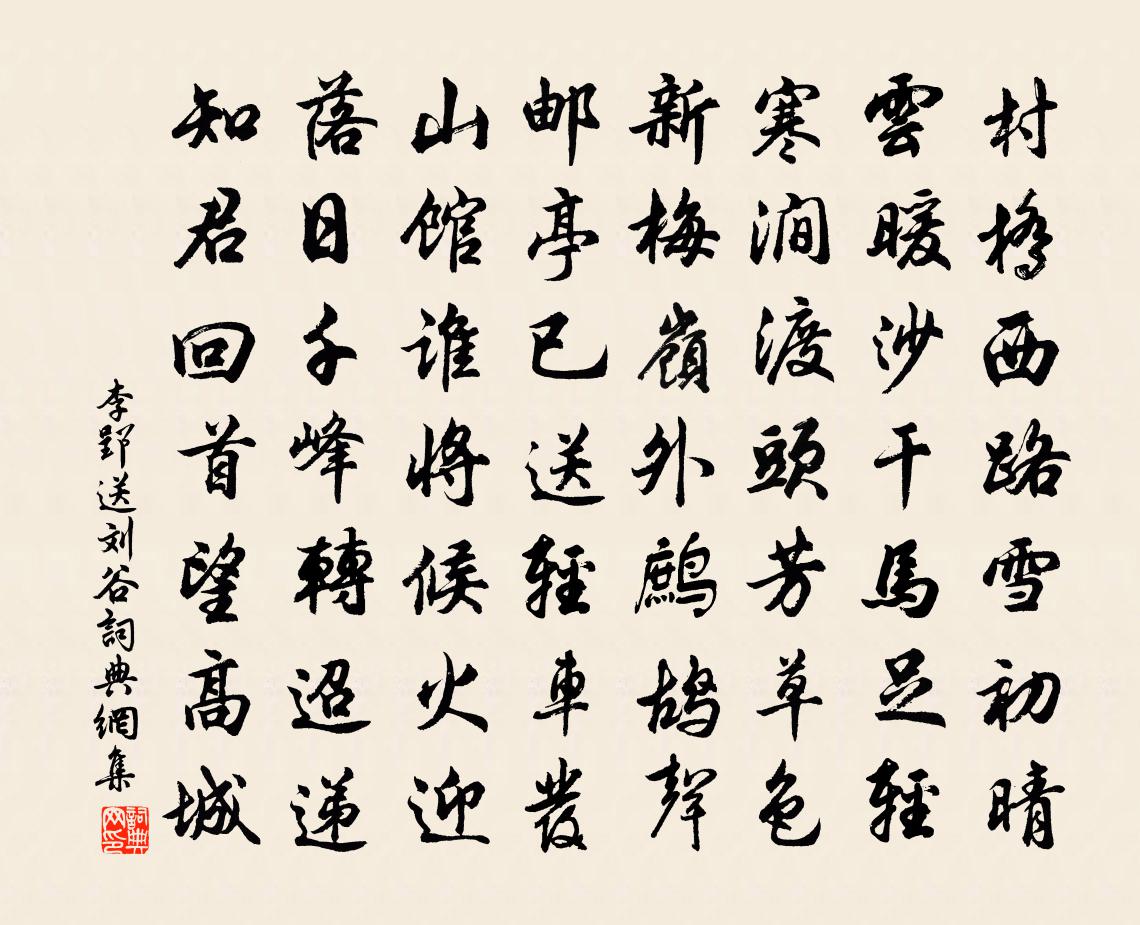 村橋西路雪初晴
雲暖沙干馬足輕
寒澗渡頭芳草色
新梅嶺外鷓鴣聲
邮亭已送輕車發
山館誰將候火迎
落日千峰轉迢递
知君回首望高城
李郢送刘谷詞典網集
詞典网印